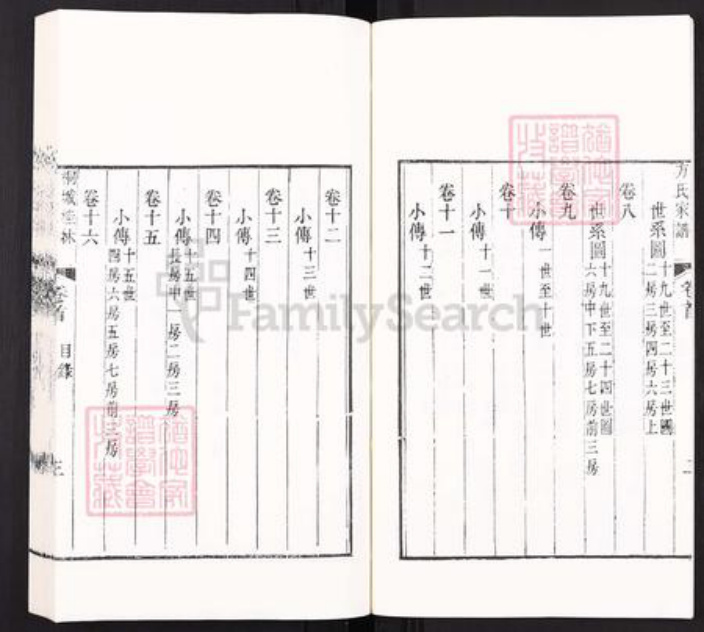 方氏家譜
卷首
二
世系圖十九世至二十三世圖
二房三房四房六房上
卷八
世系圖十九世至二十四世圖
六房中下五房七房前三房
卷九
小傳一世至十世
卷十
小傳十一世
卷十一
小傳十二世
卷十二
小傳十三世
卷十三
小傳十四世
卷十四
小傳十五世
長房中一房二房三房
卷十五
小傳十五世
四房六房五房七房前三房
卷十六
桐城桂林
卷首
目錄
三
FamilySearch